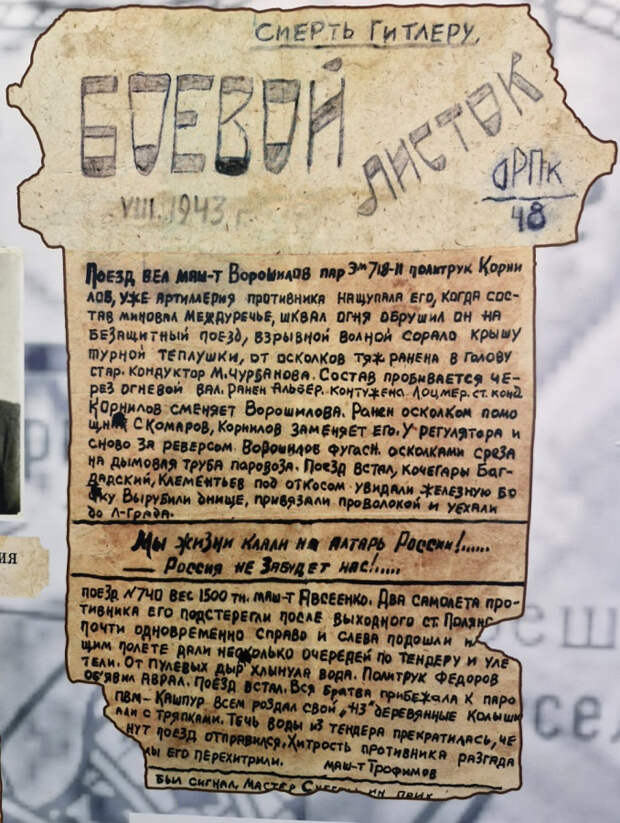 СМЕРТЬ ГИТЛЕРУ.
БОЕВОЙ
ЛИСТОК
VIII. 1943 г
ОРПК
48
ПОЕЗД ВЕЛ МАШ-Т ВОРОШИЛОВ ПАР ЭМ 718-11 ПОЛИТРУК КОРНИ
ЛОВ, УЖЕ АРТИЛЛЕРИЯ ПРОТИВНИКА НАЩУПАЛА ЕГО, КОГДА СОС-
ТАВ МИНОВАЛ МЕЖДУРЕЧЬЕ, ШКВАЛ ОГНЯ ОБРУШИЛ ОН НА
БЕЗАЩИТНЫЙ ПОЕЗД, ВЗРЫВНОЙ ВОЛНОЙ СОРАЛО КРЫШУ
ТУРНОЙ ТЕПЛУШКИ, ОТ ОСКОЛКОВ ТЯЖ РАНЕНА В ГОЛОВУ
СТАР. КОНДУКТОР М.ЧУРБАНОВА. СОСТАВ ПРОБИВАЕТСЯ ЧЕ-
РЕЗ ОГНЕВОЙ ВАЛ. РАНЕН АЛЬВЕР. КОНТУЖЕНА ЛОЦМЕР. СТ. КОНД
КОРНИЛОВ СМЕНЯЕТ ВОРОШИЛОВА. РАНЕН ОСКОЛКОМ ПОМО
ЩН СКОМАРОВ, КОРНИЛОВ ЗАМЕНЯЕТ ЕГО. У РЕГУЛЯТОРА И
СНОВО ЗА РЕВЕРСОМ ВОРОШИЛОВ ФУГАСН. ОСКОЛКАМИ СРЕЗА
НА ДЫМОВАЯ ТРУБА ПАРОВОЗА. ПОЕЗД ВСТАЛ, КОЧЕГАРЫ БАГ-
ДАДСКИЙ, КЛЕМЕНТЬЕВ ПОД ОТКОСОМ УВИДАЛИ ЖЕЛЕЗНУЮ БО
КУ ВЫРУБИЛИ ДНИЩЕ, ПРИВЯЗАЛИ ПРОВОЛОКОЙ И УЕХАЛИ
ДО Л-ГРАДА.
МЫ ЖИЗНИ КЛАЛИ НА АЛТАРЬ РОССИИ!......
— РОССИЯ НЕ ЗАБУДЕТ НАС!.....
ПОЕЗД N740 ВЕС 1500 ТН. МАШ-Т АВСЕЕНКО. ДВА САМОЛЕТА ПРО-
ТИВНИКА ЕГО ПОДСТЕРЕГЛИ ПОСЛЕ ВЫХОДНОГО СТ. ПОЛЯН
ПОЧТИ ОДНОВРЕМЕННО СПРАВО И СЛЕВА ПОДОШЛИ И
ЩИМ ПОЛЕТЕ ДАЛИ НЕСКОЛЬКО ОЧЕРЕДЕЙ ПО ТЕНДЕРУ И УЛЕ
ТЕЛИ. ОТ ПУЛЕВЫХ ДЫР ХЛЫНУЛА ВОДА. ПОЛИТРУК ФЕДОРОВ
ОБ'ЯВИЛ АВРАЛ. ПОЕЗД ВСТАЛ. ВСЯ БРАТВА ПРИБЕЖАЛА К ПАРО
ПВМ- КАШПУР ВСЕМ РОЗДАЛ СВОЙ „НЗ" ДЕРЕВЯННЫЕ КОЛЫШ
АЛИ С ТРЯПКАМИ. ТЕЧЬ ВОДЫ ИЗ ТЕНДЕРА ПРЕКРАТИЛАСЬ, ЧЕ
НУТ ПОЕЗД ОТПРАВИЛСЯ. ХИТРОСТЬ ПРОТИВНИКА РАЗГАДА
МЫ ЕГО ПЕРЕХИТРИЛИ. МАШ-Т ТРОФИМОВ
БЫЛ СИГНАЛ. МАСТЕР
ия
еш
сел